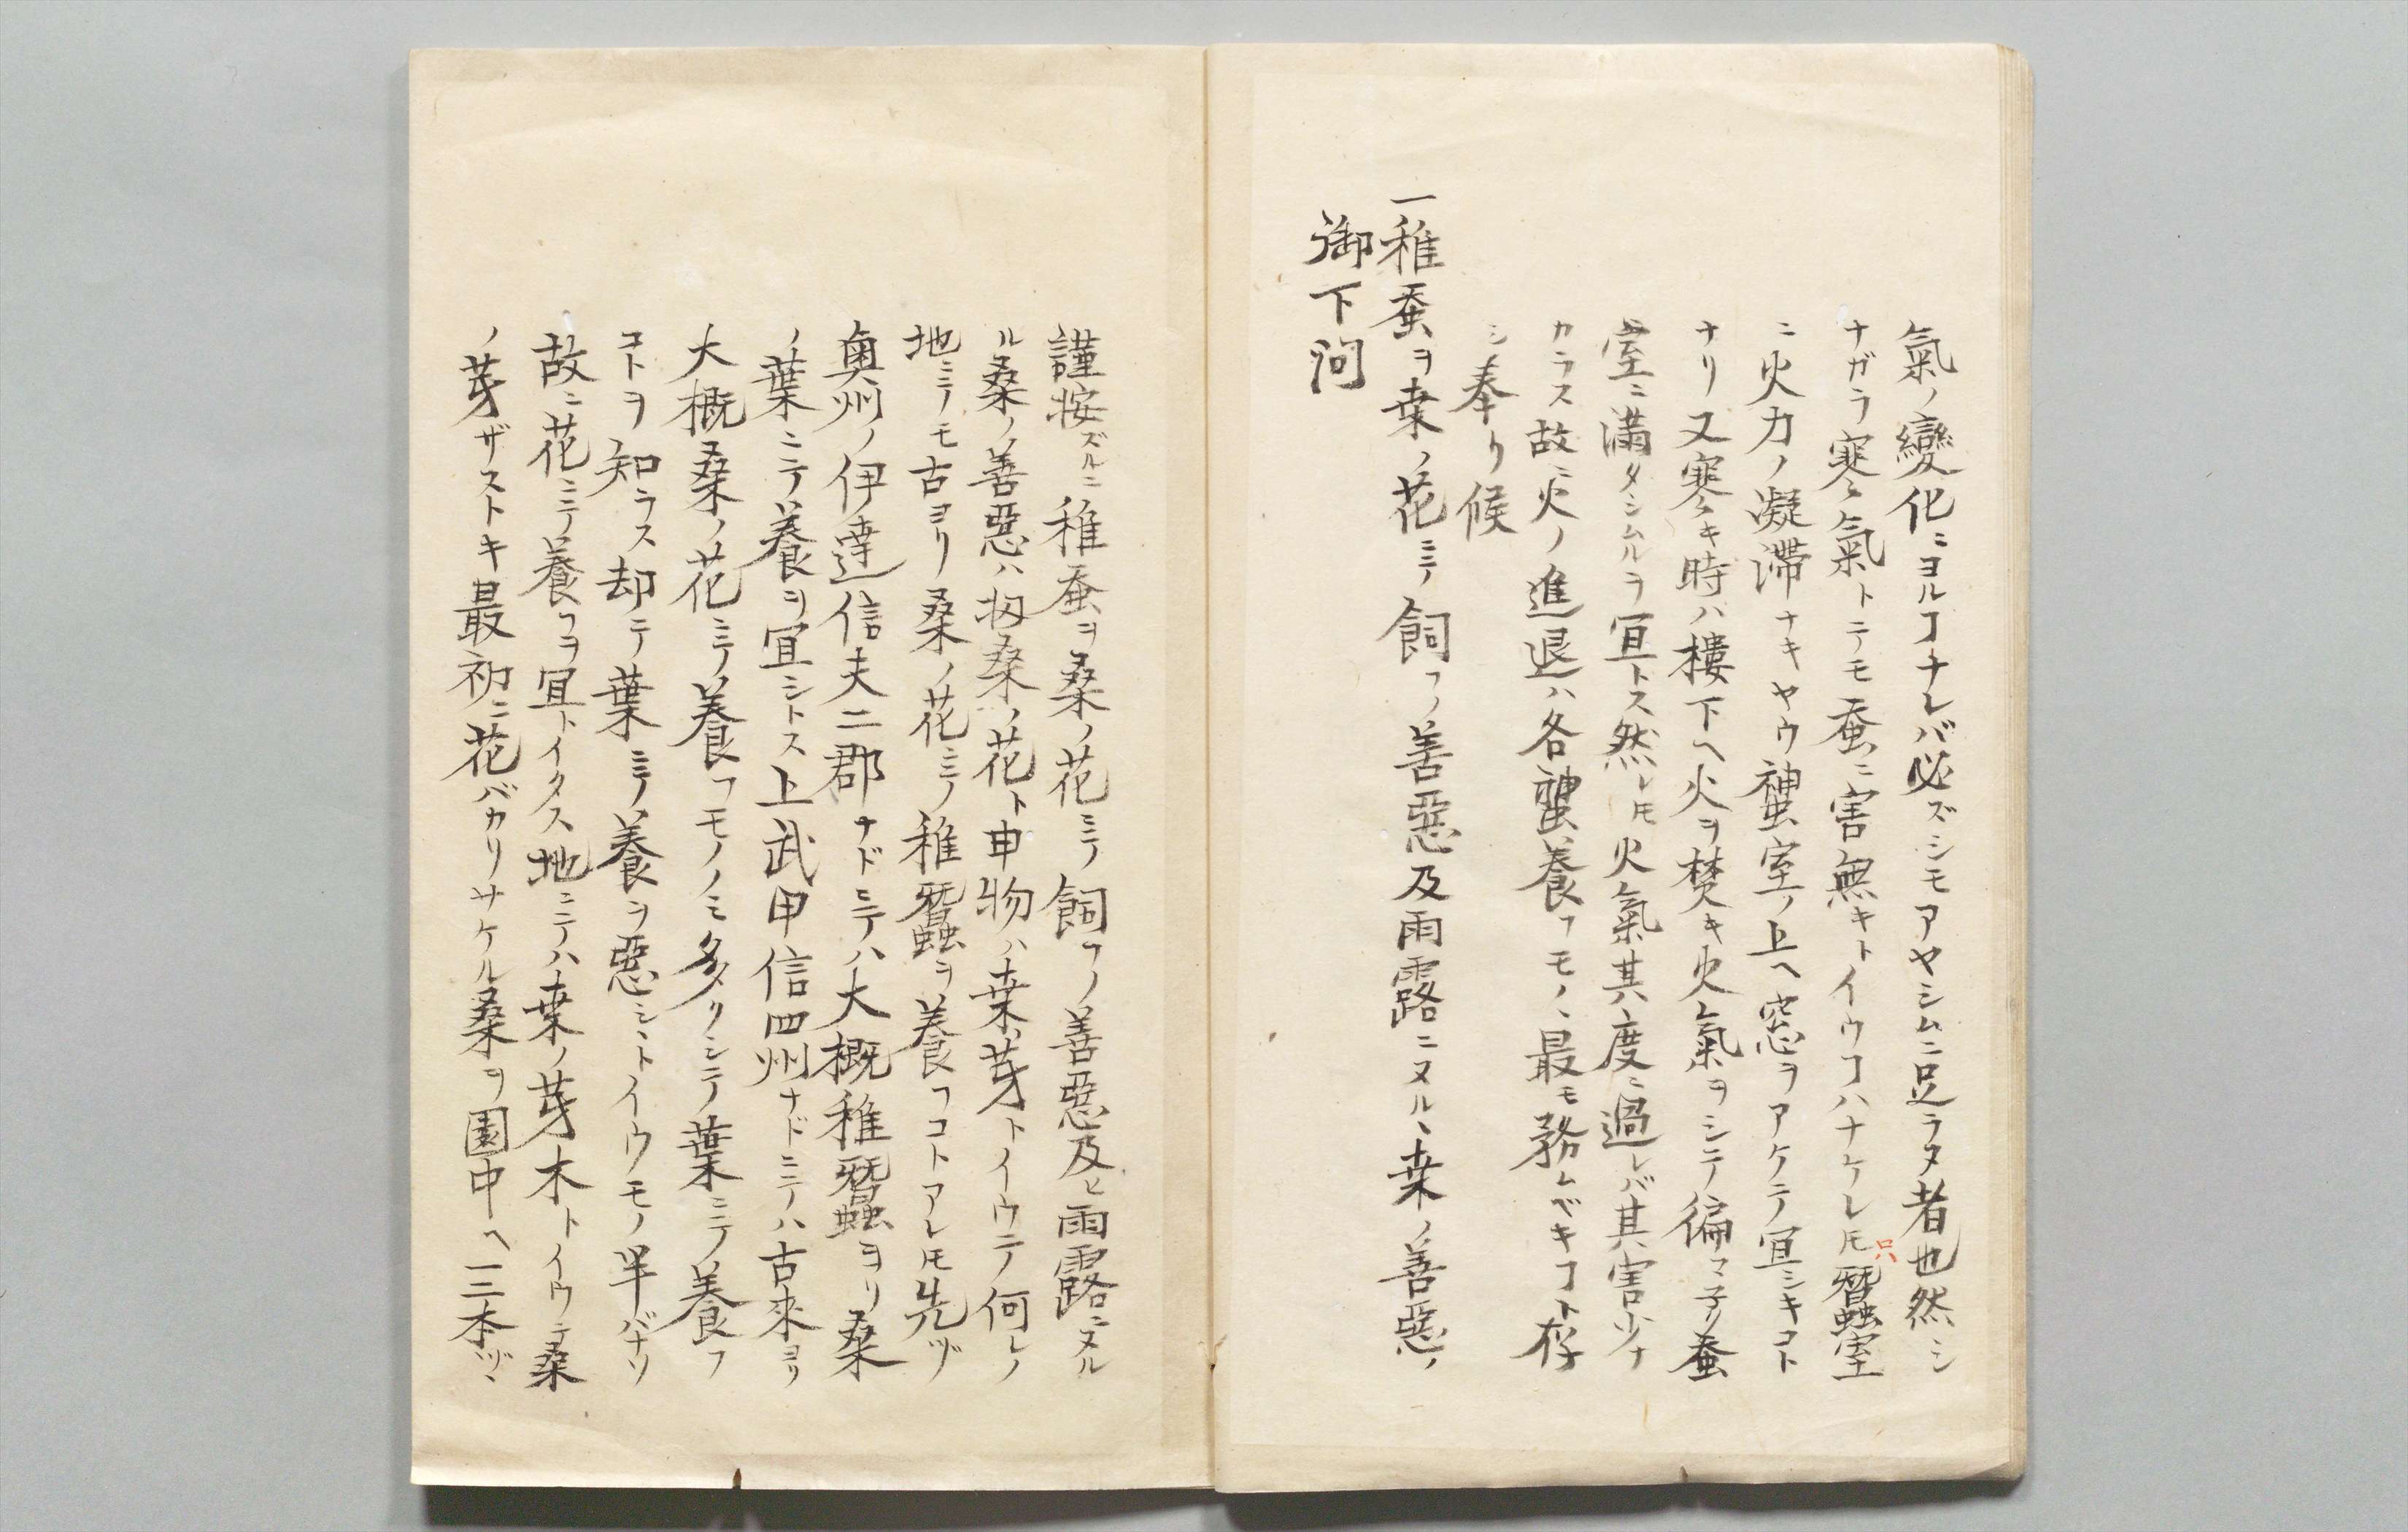 氣ノ變化ニヨルヿナレバ必ズシモアヤシムニ足ラヌ者也然シ
ナガラ寒氣トテモ蚕ニ害無キトイウヿハナケレ𪜈只蠶室
ニ火力ノ凝滞ナキヤウ蚕室ノ上ヘ窓ヲアケテ冝シキコト
ナリ又寒キ時ハ樓下ヘ火ヲ焚キ火氣ヲシテ徧マ子リ蚕
室ニ満タシムルヲ冝トス然レ𪜈火氣其度ニ過レバ其害少ナ
カラス故ニ火ノ進退ハ各蚕養フモノヽ最モ務ムベキコト存
シ奉リ候
一稚蚕ヲ桒ノ花ニテ飼フノ善惡及雨露ニヌルヽ桒ノ善惡ノ
御下問
謹按ズルニ稚蚕ヲ桑ノ花ニテ飼フノ善惡及ヒ雨露ニヌル
ル桑ノ善惡ハ扨桑ノ花ト申物ハ桒ノ芽トイウニテ何レノ
地ニテモ古ヨリ桑ノ花ニテ稚蠶ヲ養フコトアレ𪜈先ヅ
奥州ノ伊達信夫二郡ナドニテハ大概稚蠶ヨリ桑
ノ葉ニテ養ヲ宜シトス上武甲信四州ナドニテハ古來ヨリ
大概桑ノ花ニテ養フモノノミ多クシテ葉ニテ養フ
コトヲ知ラス却テ葉ニテ養ヲ惡シヽトイウモノ半バナリ
故ニ花ニテ養フヲ冝トイタス地ニテハ桒ノ芽木トイウテ桑
ノ芽ザストキ最初ニ花バカリサケル桑ヲ園中ヘ一二本ヅヽ